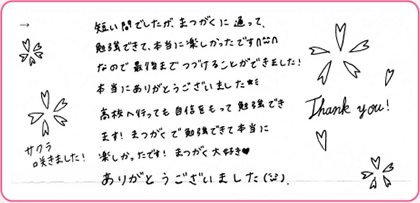 →
短い間でしたが、まつがくに通って、
勉強できて、本当に楽しかったです∩^^∩
なので最後までつづけることができました!
本当にありがとうございました**
高校へ行っても自信をもって勉強でき
ます! まつがくで勉強できて本当に
楽しかったです! まつがく大好き♥
ありがとうございました(^^).
サクラ
咲きました!
Thank you!